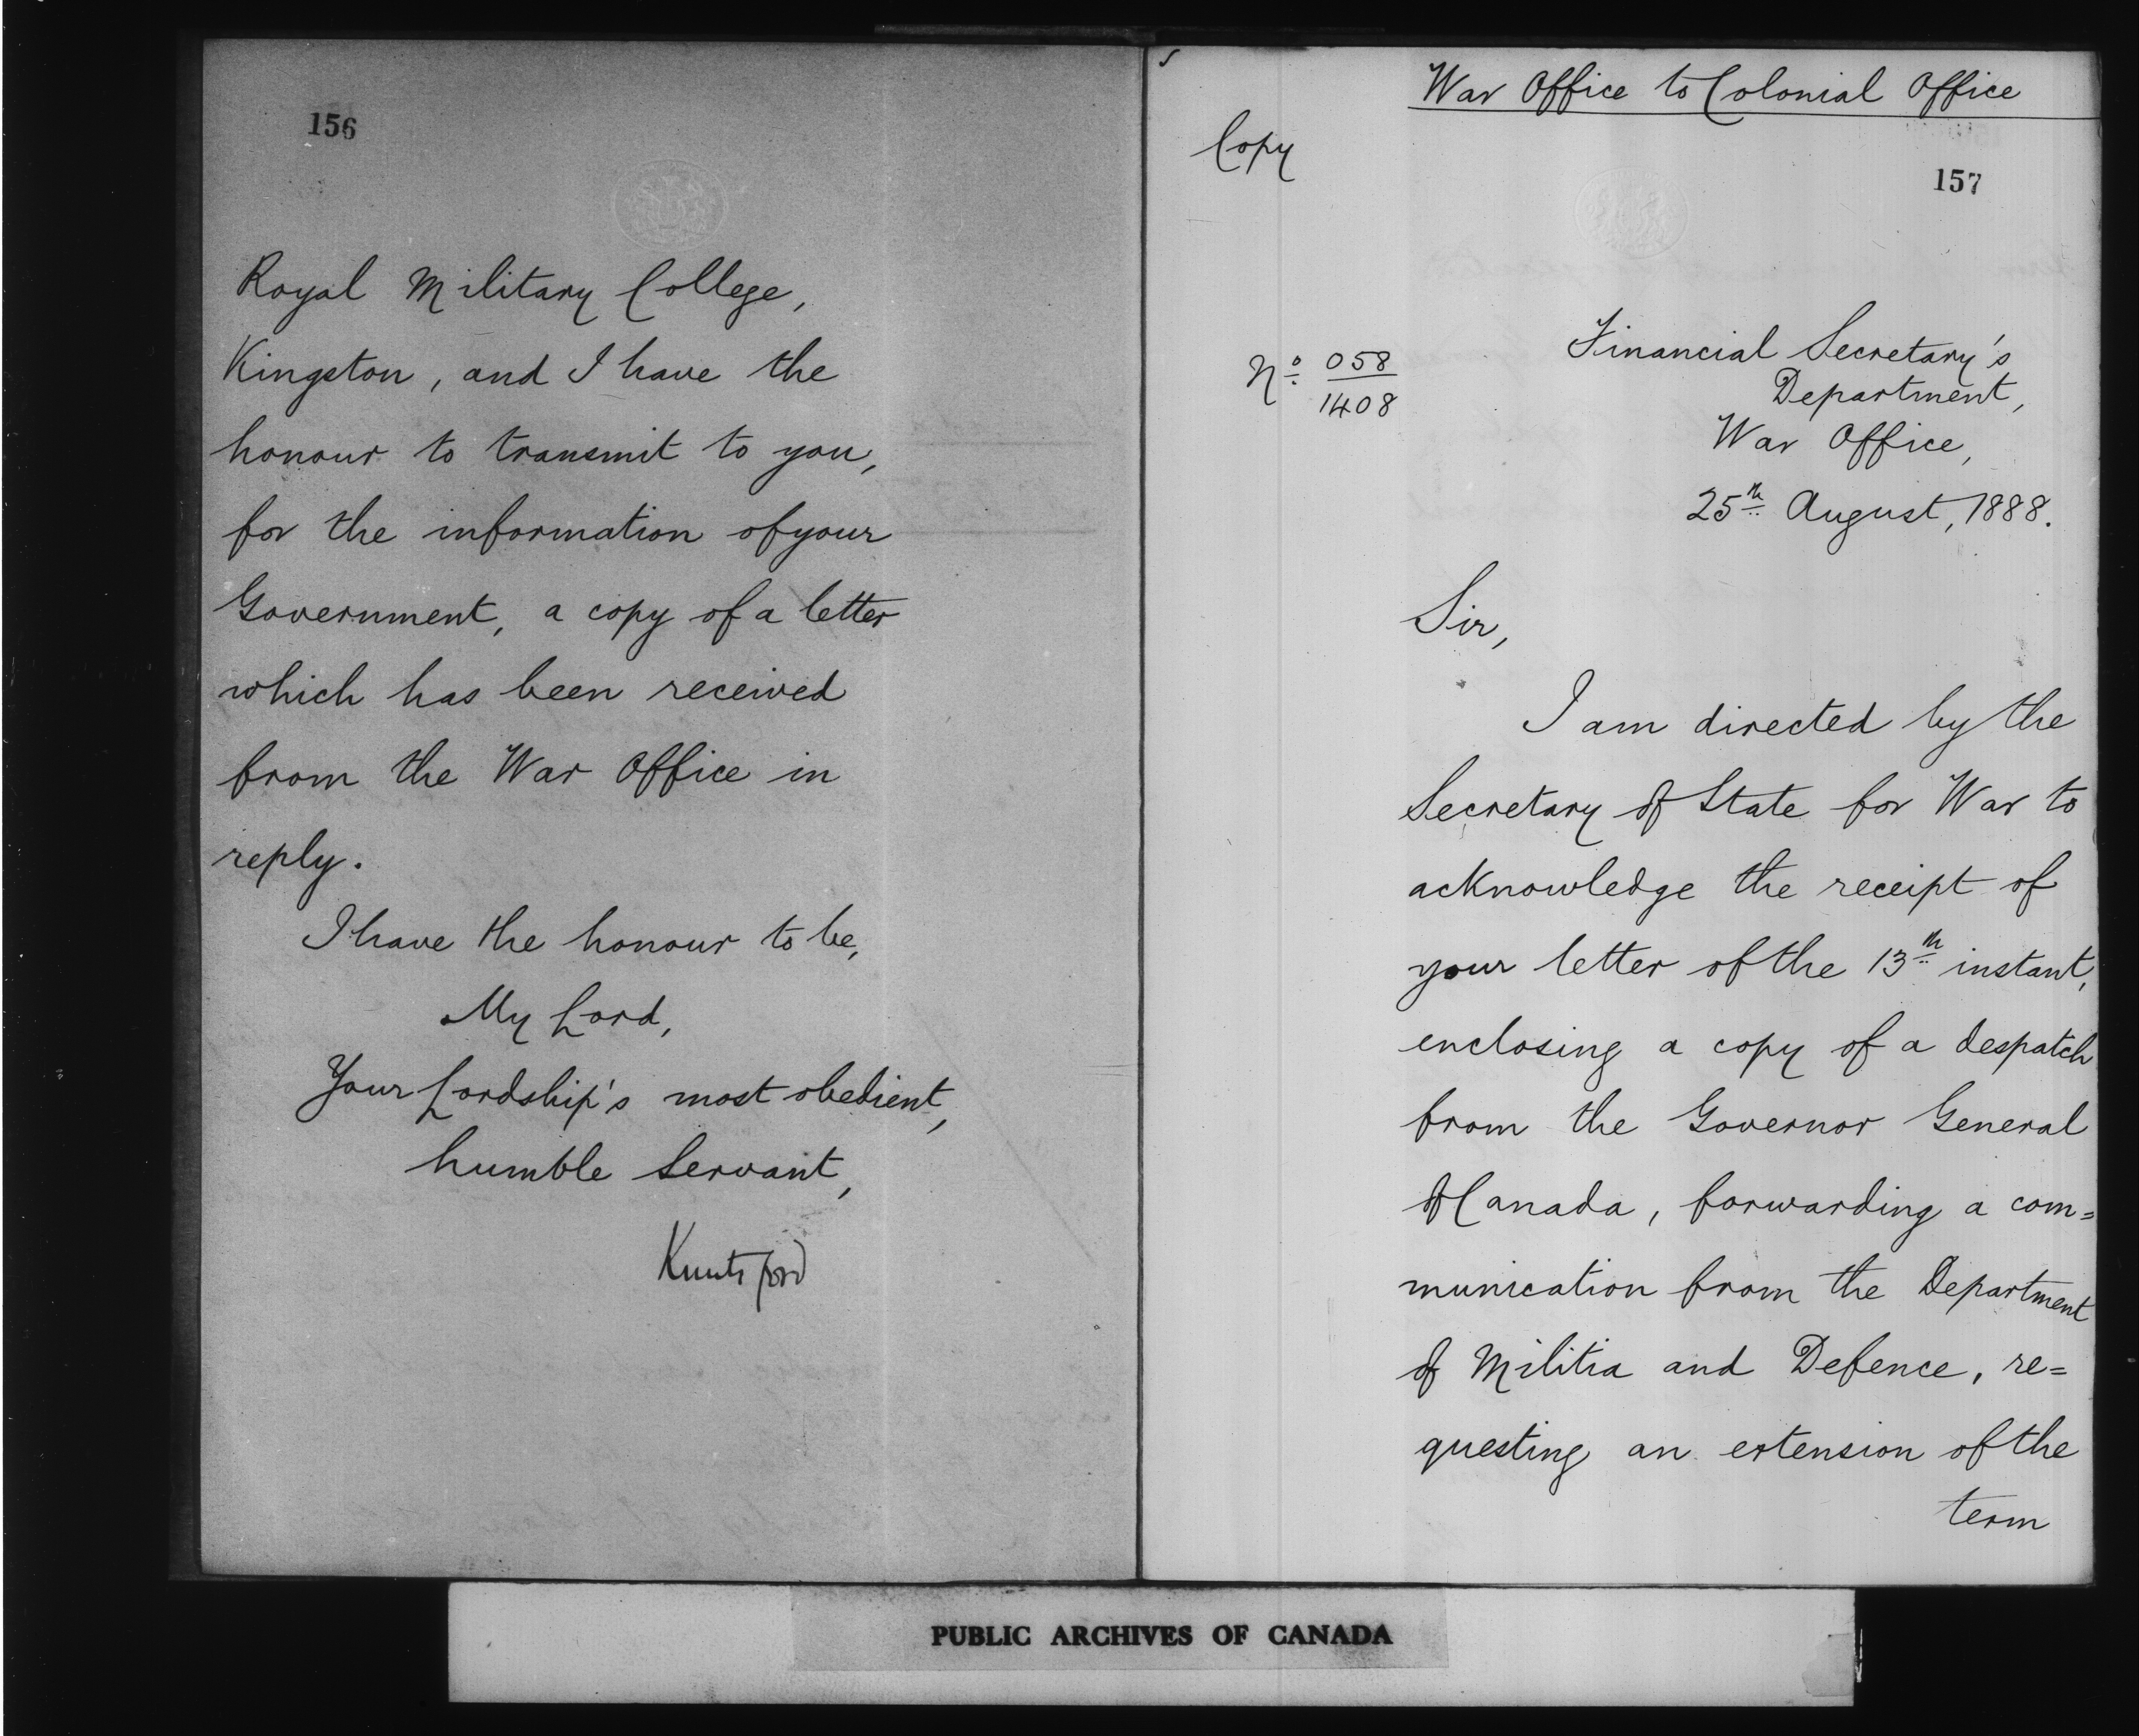 156
Royal Military College,
Kingston, and I have the
honour to transmit to you,
for the information of your
Government, a copy of a letter
which has been received
from the War Office in
reply.
I have the honour to be,
My Lord,
Your Lordship's most obedient,
humble Servant,
Knutsford
War Office to Colonial Office
Copy
157
Nº 058/1408
Financial Secretary's
Department,
War Office,
25th August, 1888.
Sir,
I am directed by the
Secretary of State for War to
acknowledge the receipt of
your letter of the 13th instant,
enclosing a copy of a despatch
from the Governor General
of Canada, forwarding a com=
munication from the Department
of Militia and Defence, re=
questing an extension of the
term
PUBLIC ARCHIVES OF CANADA